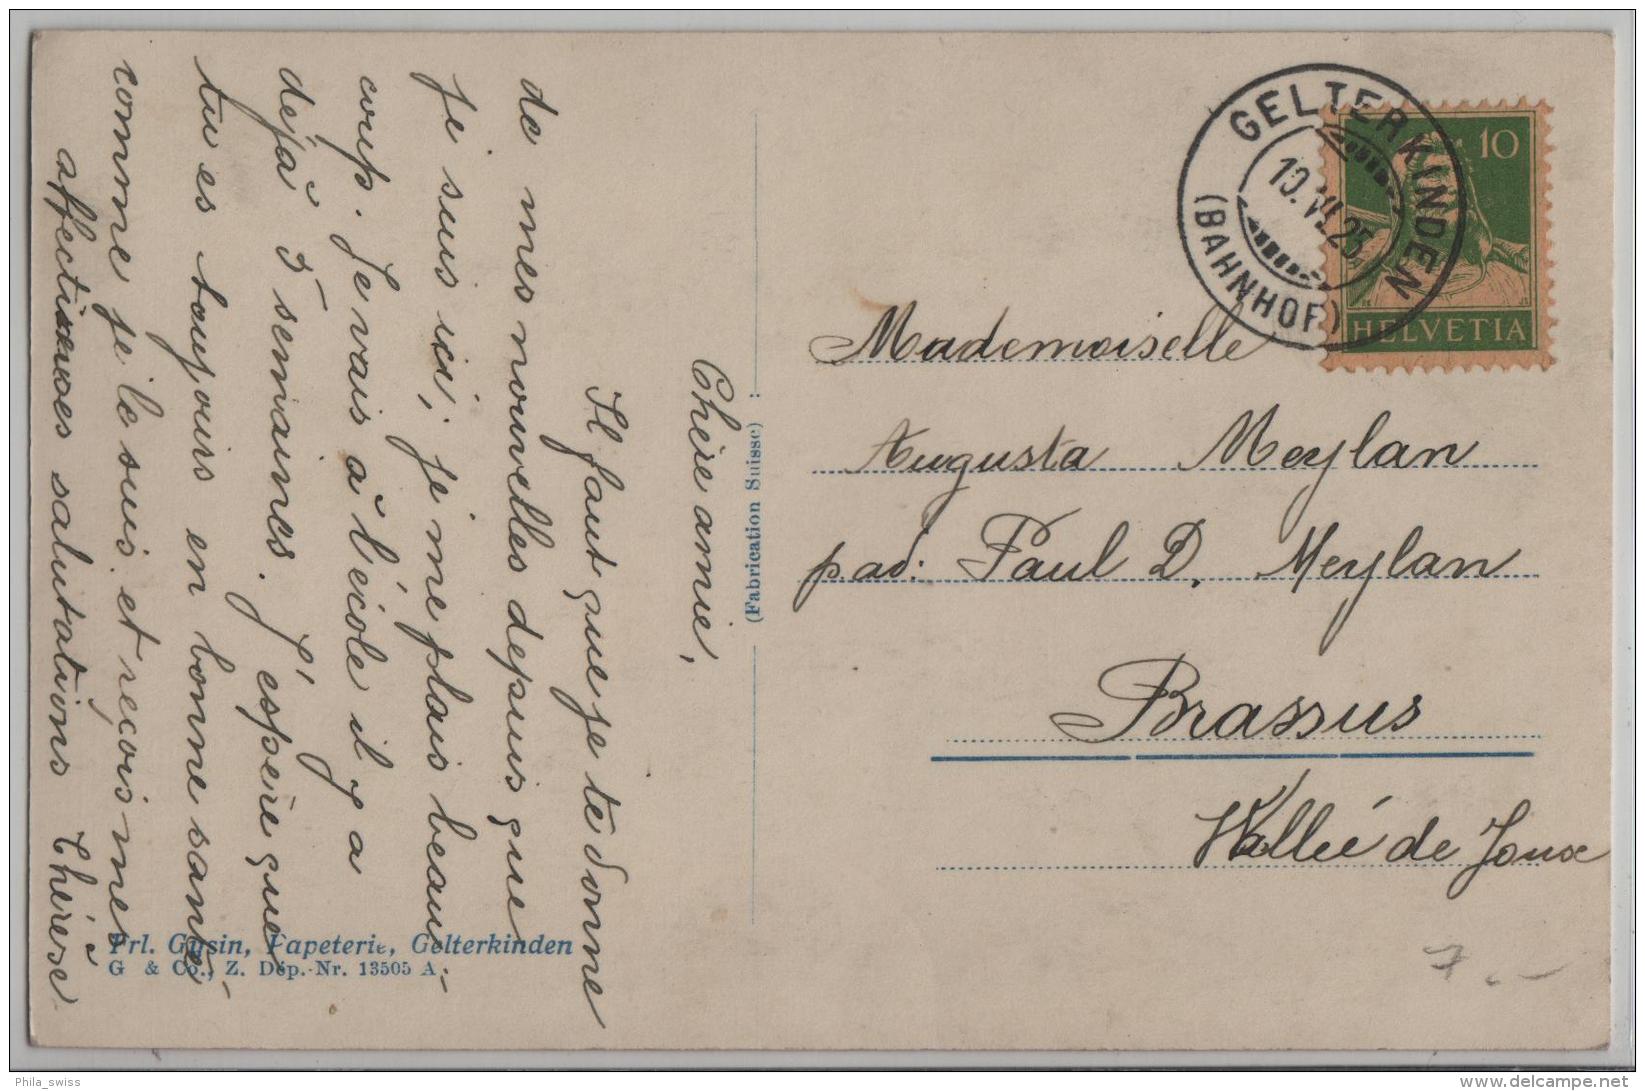 Chère amie,
Il faut que je te donne
de mes nouvelles depuis que
je suis ici; je me plais beau-
coup. Je vais à l'école il y a
déjà 5 semaines. J'espère que
tu es toujours en bonne santé
comme je le suis et reçois mes
affectueuses salutations Thérèse
(Fabrication Suisse)
Frl. Gysin, Papeterie, Gelterkinden
G & Co., Z. Dép.-Nr. 13505 A
GELTERKINDEN
10.VI.25
(BAHNHOF)
10
HELVETIA
Mademoiselle
Augusta Meylan
pad: Paul D. Meylan
Brassus
Vallée de Joux
7.-
Phila_swiss
www.delcampe.net